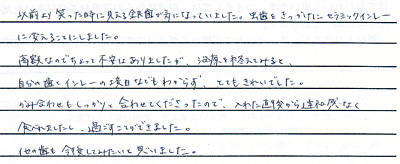 以前より笑った時に見える銀歯が気になっていました。虫歯をきっかけにセラミックインレー
に変えることにしました。
高額なのでちょっと不安はありましたが、治療を終えてみると、
自分の歯とインレーの境目などもわからず、とてもきれいでした。
かみ合わせもしっかりと合わせてくださったので、入れた直後から違和感なく
使えましたし、過ごすことができました。
他の歯も今後してみたいと思いました。